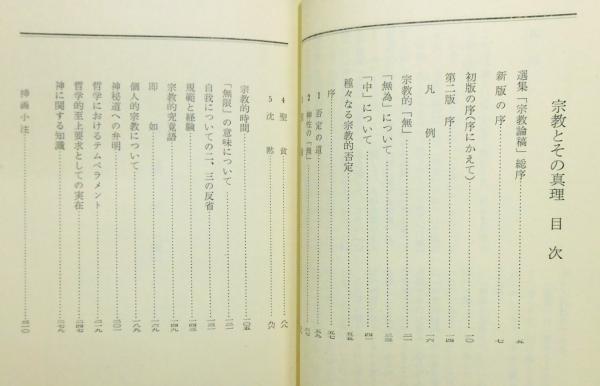 宗教とその真理　目次
選集「宗教論稿」総序……五
新版の序……七
初版の序(序にかえて)……一〇
第二版　序……一四
凡例……一六
宗教的「無」……二一
「無為」について……三三
「中」について……四一
種々なる宗教的否定……五五
序……五七
1　否定の道……五九
2　神性の「無」
4　聖貧
5　沈黙……九六
宗教的時間……一〇五
「無限」の意味について……一二一
自我についての二、三の反省……一三一
規範と経験……一四九
宗教的究竟語
即如……一六九
個人的宗教について……一八九
神秘道への弁明……二〇一
哲学におけるテムペラメント……二一九
哲学的至上要求としての実在……二四七
神に関する知識……二七九
挿画小註……三一〇